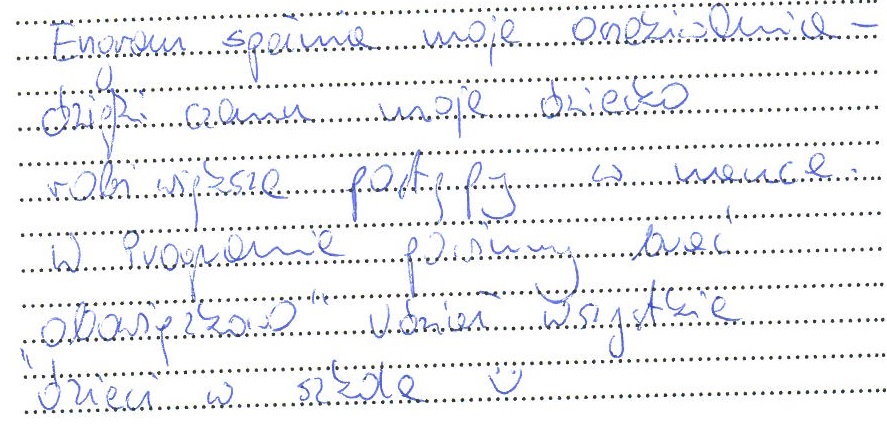 Engram spełnia moje oczekiwania –
dzięki czemu moje dziecko
robi większe postępy w nauce.
W Programie powinny brać
"obowiązkowo" udział wszystkie
dzieci w szkole ☺